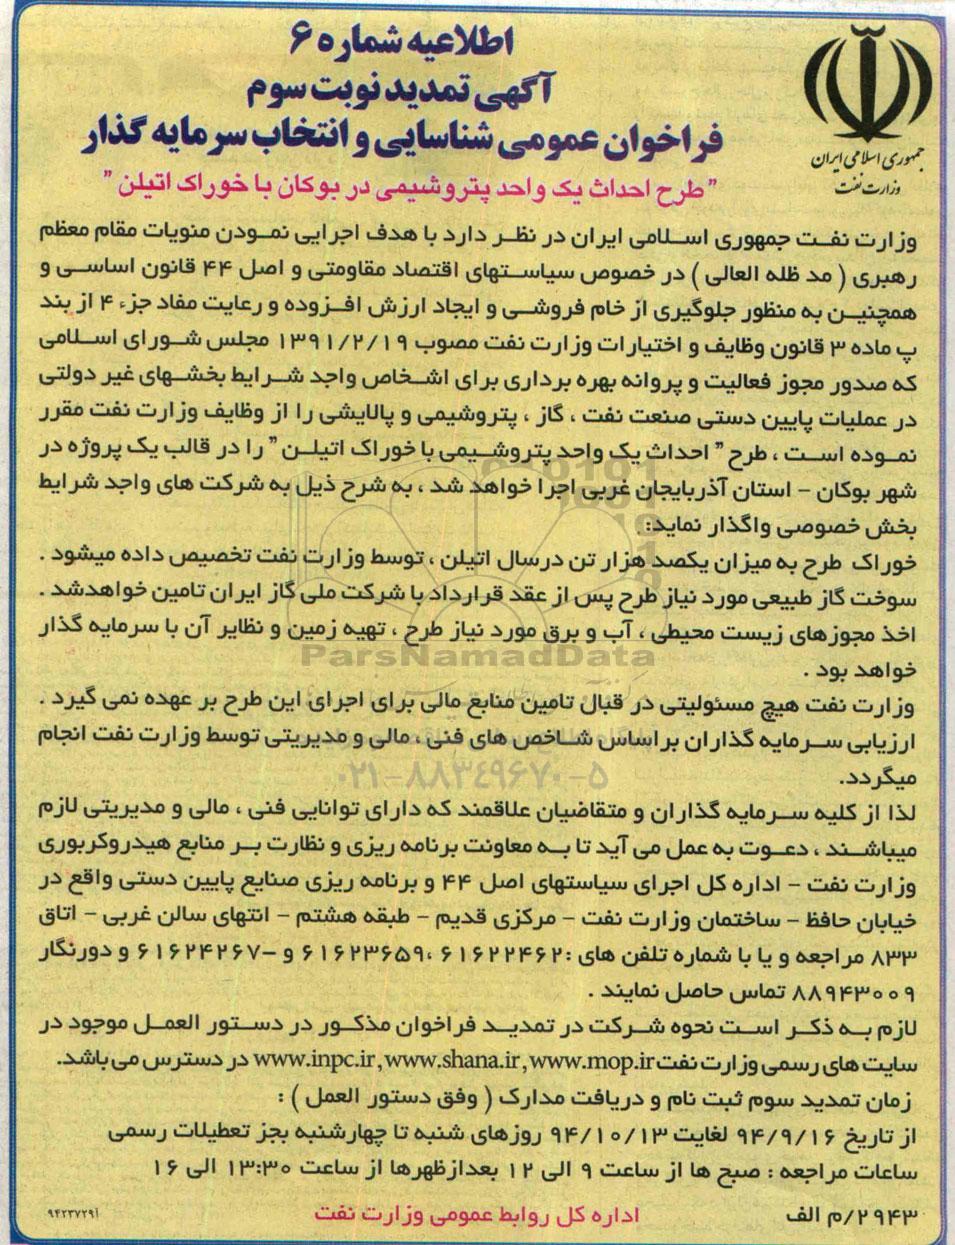 اطلاعیه شماره ۶
آگهی تمدید نوبت سوم
فراخوان عمومی شناسایی و انتخاب سرمایه گذار
"طرح احداث یک واحد پتروشیمی در بوکان با خوراک اتیلن"
جمهوری اسلامی ایران
وزارت نفت
وزارت نفت جمهوری اسلامی ایران در نظر دارد با هدف اجرایی نمودن منویات مقام معظم
رهبری ( مد ظله العالی ) در خصوص سیاستهای اقتصاد مقاومتی و اصل ۴۴ قانون اساسی و
همچنین به منظور جلوگیری از خام فروشی و ایجاد ارزش افزوده و رعایت مفاد جزء ۴ از بند
پ ماده ۳ قانون وظایف و اختیارات وزارت نفت مصوب ۱۳۹۱/۲/۱۹ مجلس شورای اسلامی
که صدور مجوز فعالیت و پروانه بهره برداری برای اشخاص واجد شرایط بخشهای غیر دولتی
در عملیات پایین دستی صنعت نفت ، گاز ، پتروشیمی و پالایشی را از وظایف وزارت نفت مقرر
نموده است ، طرح " احداث یک واحد پتروشیمی با خوراک اتیلن " را در قالب یک پروژه در
شهر بوکان – استان آذربایجان غربی اجرا خواهد شد ، به شرح ذیل به شرکت های واجد شرایط
بخش خصوصی واگذار نماید:
خوراک طرح به میزان یکصد هزار تن درسال اتیلن ، توسط وزارت نفت تخصیص داده میشود .
سوخت گاز طبیعی مورد نیاز طرح پس از عقد قرارداد با شرکت ملی گاز ایران تامین خواهدشد .
اخذ مجوزهای زیست محیطی ، آب و برق مورد نیاز طرح ، تهیه زمین و نظایر آن با سرمایه گذار
ParsNamadData
خواهد بود .
وزارت نفت هیچ مسئولیتی در قبال تامین منابع مالی برای اجرای این طرح بر عهده نمی گیرد .
ارزیابی سرمایه گذاران براساس شاخص های فنی ، مالی و مدیریتی توسط وزارت نفت انجام
میگردد.
۰۲۱–۸۸۳۴۹۶۷۰–۵
لذا از کلیه سرمایه گذاران و متقاضیان علاقمند که دارای توانایی فنی ، مالی و مدیریتی لازم
میباشند ، دعوت به عمل می آید تا به معاونت برنامه ریزی و نظارت بر منابع هیدروکربوری
وزارت نفت – اداره کل اجرای سیاستهای اصل ۴۴ و برنامه ریزی صنایع پایین دستی واقع در
خیابان حافظ – ساختمان وزارت نفت – مرکزی قدیم – طبقه هشتم – انتهای سالن غربی – اتاق
۸۳۳ مراجعه و یا با شماره تلفن های :۶۱۶۲۲۴۶۲ ،۶۱۶۲۳۶۵۹ و –۶۱۶۲۴۲۶۷ و دورنگار
۸۸۹۴۳۰۰۹ تماس حاصل نمایند .
لازم به ذکر است نحوه شرکت در تمدید فراخوان مذکور در دستور العمل موجود در
سایت های رسمی وزارت نفت www.inpc.ir,www.shana.ir,www.mop.ir در دسترس می باشد.
زمان تمدید سوم ثبت نام و دریافت مدارک ( وفق دستور العمل ) :
از تاریخ ۹۴/۹/۱۶ لغایت ۹۴/۱۰/۱۳ روزهای شنبه تا چهارشنبه بجز تعطیلات رسمی
ساعات مراجعه : صبح ها از ساعت ۹ الی ۱۲ بعدازظهرها از ساعت ۱۳:۳۰ الی ۱۶
۲۹۴۳/م الف
اداره کل روابط عمومی وزارت نفت
۹۴۲۳۷۲۹آ